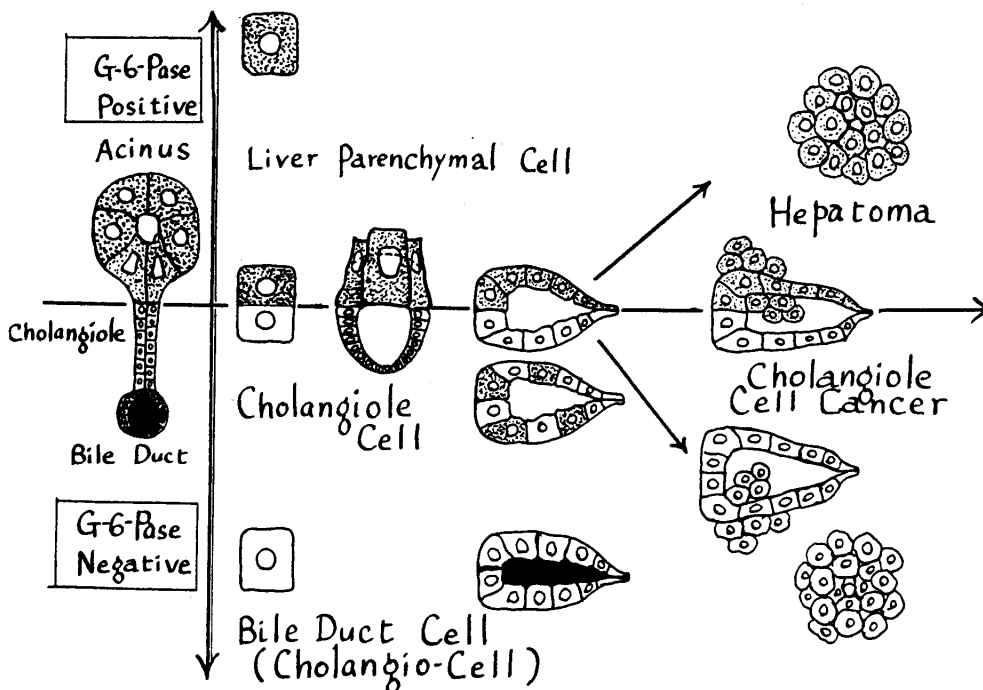 G-6-Pase
Positive
Acinus
Liver Parenchymal Cell
Hepatoma
Cholangiole
Cholangiole
Cell
Cholangiole
Cell Cancer
Bile Duct
G-6-Pase
Negative
Bile Duct Cell
(Cholangio-Cell)